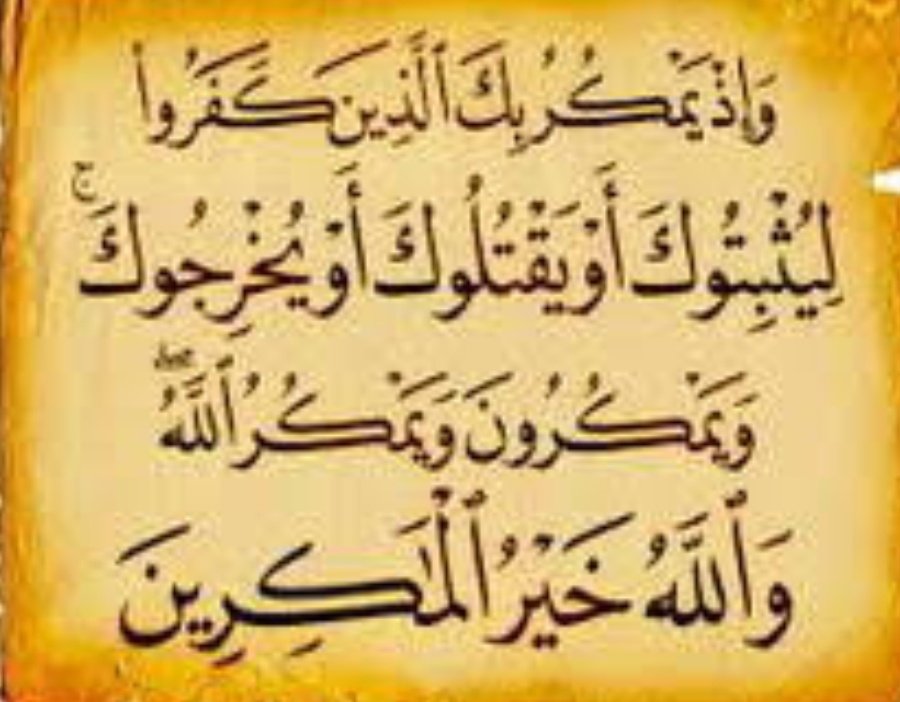 وَإِذْ يَمْكُرُ بِكَ ٱلَّذِينَ كَفَرُوا۟
لِيُثْبِتُوكَ أَوْ يَقْتُلُوكَ أَوْ يُخْرِجُوكَ ۚ
وَيَمْكُرُونَ وَيَمْكُرُ ٱللَّهُ ۖ
وَٱللَّهُ خَيْرُ ٱلْمَـٰكِرِينَ